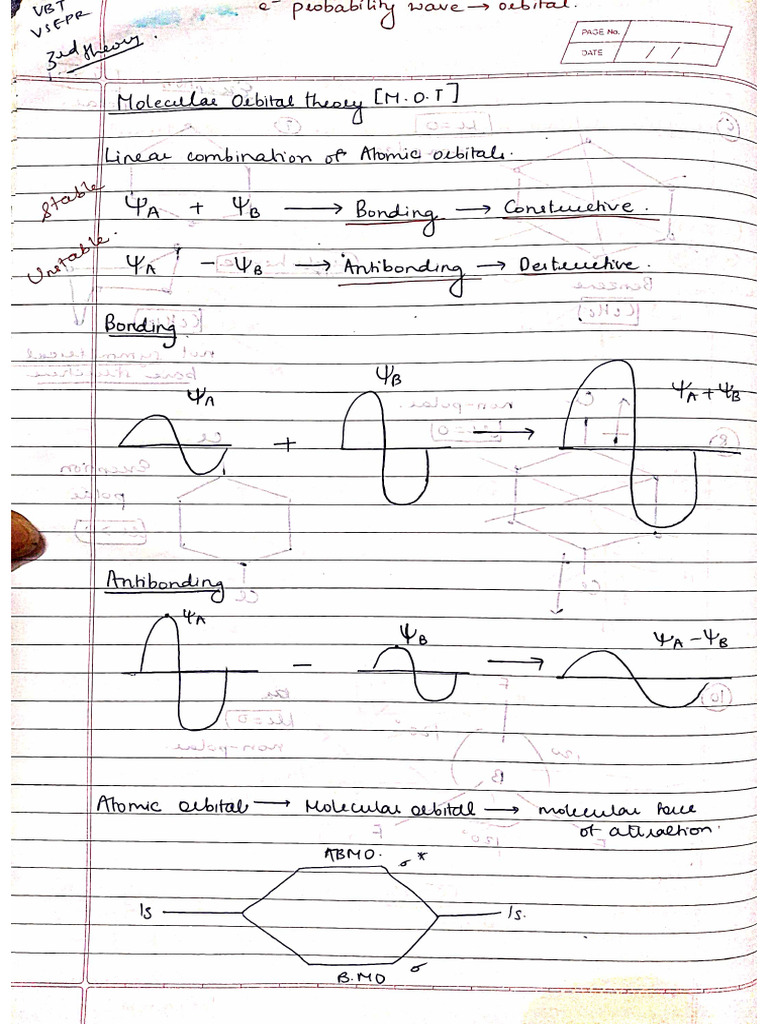 e⁻ probability wave → orbital.
VBT
VSEPR
3rd theory.
PAGE No.
DATE / /
Molecular Orbital theory [M.O.T]
Linear combination of Atomic orbitals.
Stable ΨA + ΨB → Bonding → Constructive.
Unstable. ΨA - ΨB → Antibonding → Destructive.
Bonding
ΨA
ΨB
ΨA + ΨB
+ →
Antibonding
ΨA
ΨB
ΨA - ΨB
- →
Atomic orbital → Molecular orbital → molecular force
of attraction.
ABMO. σ*
1s 1s.
B.MO σ